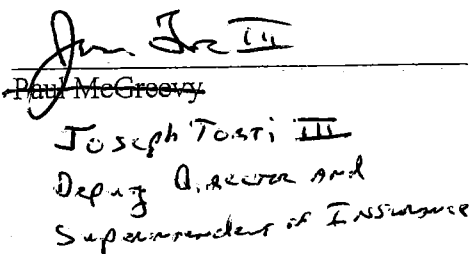 Paul McGreevy
Joseph Torti III
Deputy Director and
Superintendent of Insurance